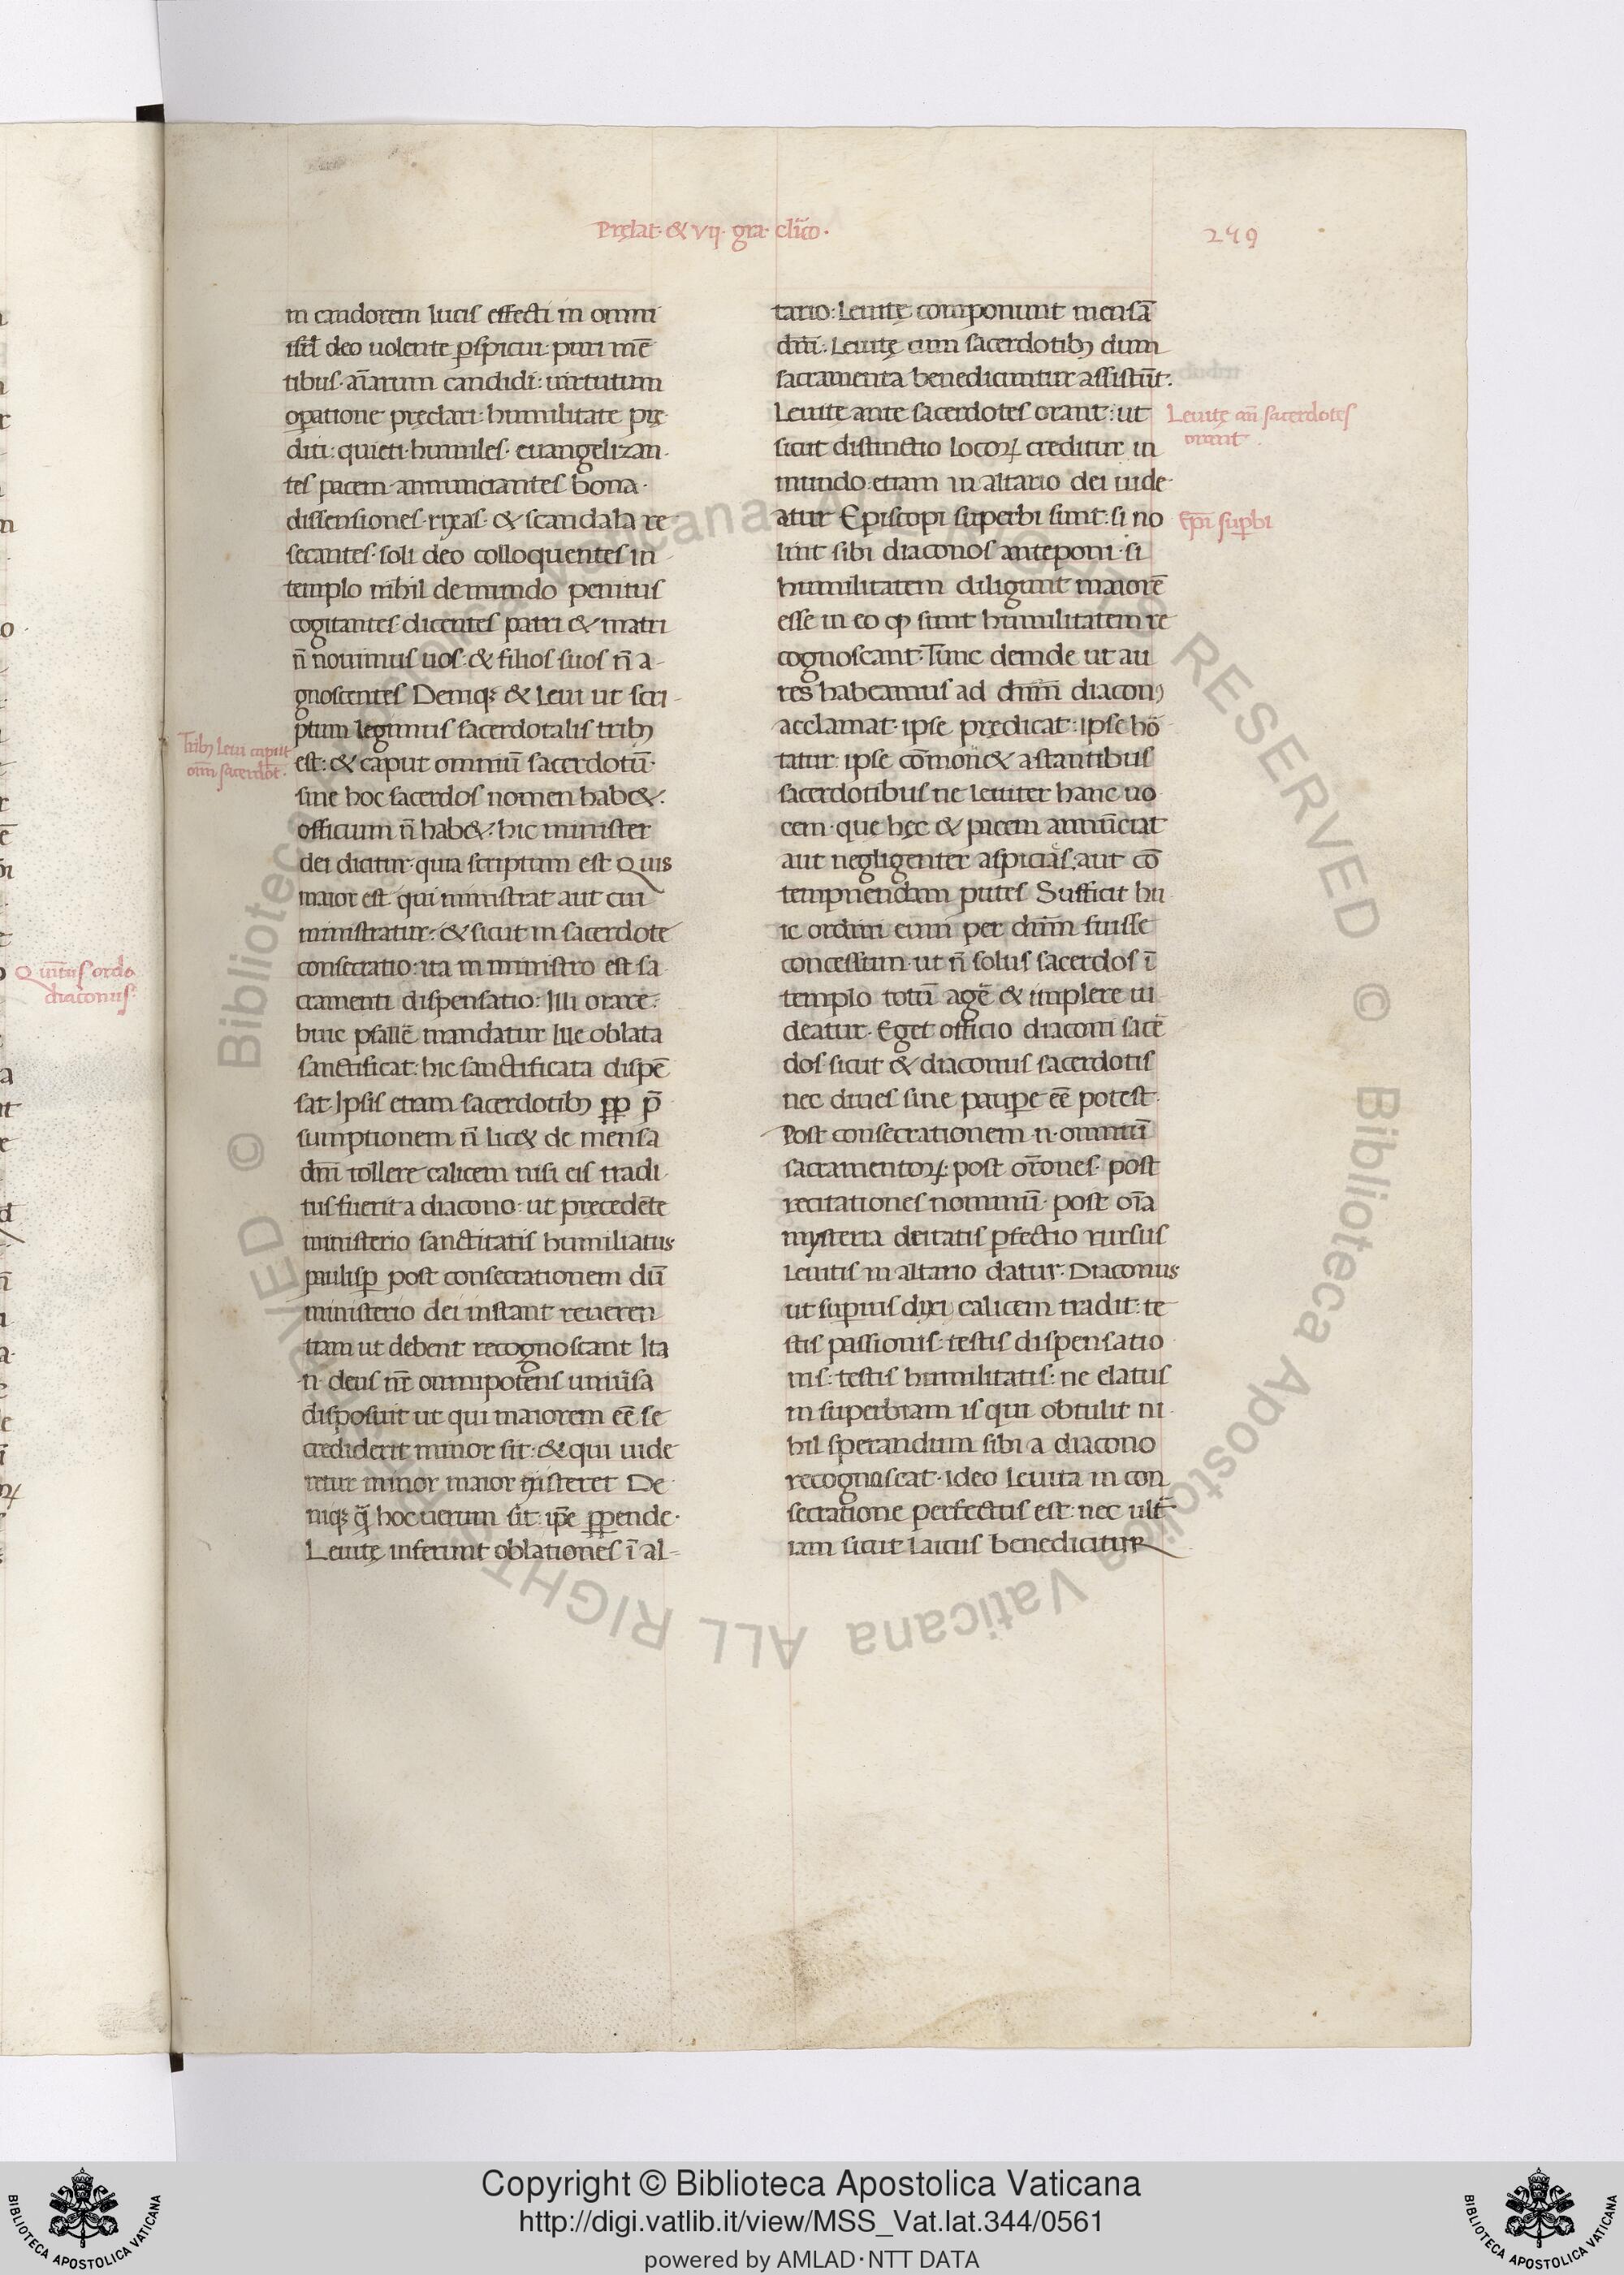 Pręlat· & vıı· gra· cl̄ico·
249
in candorem lucis effecti in omni
isrl̄ deo uolente ꝑspicui: puri mē
tibus· aīarum candidi: uirtutum
oꝑatione pręclari: humilitate prę
diti: quieti· humiles· euangelizan-
tes pacem· annunciantes bona·
dissensiones· rixas· & scandala re
secantes· soli deo colloquentes in
templo nihil de mundo penitus
cogitantes· dicentes patri & matri
n̄ nouimus uos: & filios suos n̄ a-
gnoscentes Deniqꝫ & Leui ut scri-
ptum legimus sacerdotalis tribꝰ
est: & caput omniū sacerdotū·
sine hoc sacerdos nomen hab&·
officium n̄ hab&· hic minister
dei dicitur· quia scriptum est Quis
maior est qui ministrat aut cui
ministratur: & sicut in sacerdote
consecratio: ita in ministro est sa
cramenti dispensatio: Illi orare:
huic psallē mandatur Ille oblata
sanctificat: hic sanctificata dispē
sat· Ipsis etiam sacerdotibꝰ ꝓꝑ p̄
sumptionem n̄ lic& de mensa
dn̄i tollere calicem nisi eis tradi-
tus fuerit a diacono: ut pręcedēte
ministerio sanctitatis humiliatus
paulisꝑ post consecrationem dū
ministerio dei instant reueren
tiam ut debent recognoscant Ita
·n· deus nr̄ omnipotens uniūsa
disposuit ut qui maiorem eē se
crediderit minor sit: & qui uide
retur minor maior existeret De
niqꝫ q̄ hoc uerum sit: ip̄e ꝑpende·
Leuitę inferunt oblationes ī al-
Tribꝰ Leui caput
oīm sacerdot̄·
Quintus ordo
diaconus·
tario: Leuitę componunt mensā
dn̄i: Leuitę cum sacerdotibꝰ dum
sacramenta benedicuntur assistūt·
Leuitę ante sacerdotes orant: ut
sicut distinctio locoꝝ creditur in
mundo· etiam in altario dei uide-
atur Episcopi superbi sunt: si no
lint sibi diaconos anteponi· si
humilitatem diligunt maiorē
esse in eo ꝙ sunt humilitatem re
cognoscant· Tunc deinde ut au
res habeamus ad dn̄m diaconꝰ
acclamat· ipse pręedicat: ipse hō
tatur: ipse cōmon& astantibus
sacerdotibus ne leuiter hanc uo
cem· que hęc & pacem annūciat
aut negligenter aspicias: aut cō
tempnendam putes Sufficit hu
ic ordini eum per dn̄m fuisse
concessum· ut n̄ solus sacerdos ī
templo totū agē & implere ui
deatur· Eget officio diaconi sacē
dos· sicut & diaconus sacerdotis
nec diues sine pauꝑe eē potest·
Post consecrationem ·n· omniū
sacramentoꝝ· post or̄ones· post
recitationes nominū· post oīa
mysteria deitatis ꝑfectio rursus
leuitis in altario datur· Diaconus
ut suꝑius dixi calicem tradit: te
stis passionis· testis dispensatio
nis: testis humilitatis: ne elatus
in superbiam is qui obtulit ni-
hil sperandum sibi a diacono
recognoscat· ideo leuita in con
secratione perfectus est: nec ult̄
iam sicut laicus benedicitur
Leuitę an̄ sacerdotes
orant·
Ep̄i suꝑbi
© Biblioteca Apostolica Vaticana ALL RIGHTS RESERVED © Biblioteca Apostolica Vaticana ALL RIGHTS RESERVED
Copyright © Biblioteca Apostolica Vaticana
http://digi.vatlib.it/view/MSS_Vat.lat.344/0561
powered by AMLAD·NTT DATA
BIBLIOTECA APOSTOLICA VATICANA
BIBLIOTECA APOSTOLICA VATICANA